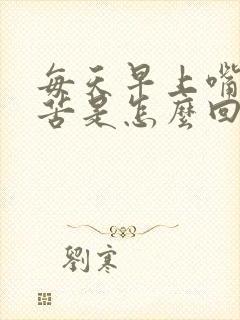 每天早上嘴
苦是怎麼回
劉寒